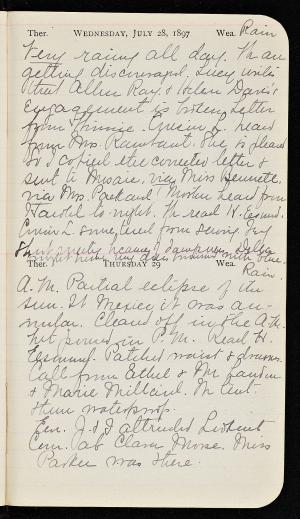 Ther. WEDNESDAY, JULY 28, 1897 Wea. Rain
Very rainy all day. M. an
getting discouraged. Lucy writes
that Allen Ray. & Helen Davis's
Engagement is broken. Letter
from Minnie. Cousin L. heard
from Mrs. Rambaut. She is pleased
so I copied the corrected letter &
sent to via Miss Bennett,
via Mrs. Packard. Mother heard from
to-night. M. read H. Esmond.
Cousin L. some, tired from sewing.

Ther. THURSDAY 29 Wea. Rain.
A.M. Partial eclipse of the
sun. In Mexico it was an-
nular. Cleared off in the A.M.
but poured in P.M. Read H.
Esmond. Patched waist & drawers.
Call from Ethel & Mr. Landon
& Marie Millard. M. lent
them waterproof.
Eve. J. & I attended
Com. at Clara Morse. Miss
Parker was there.